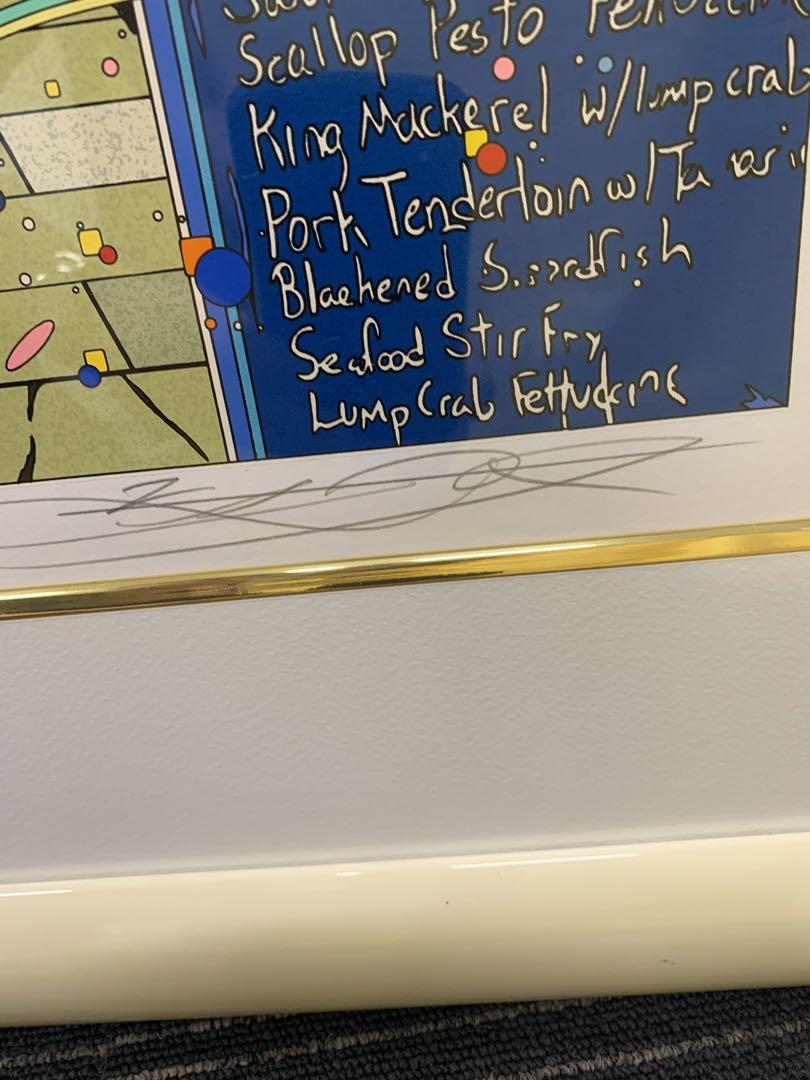 Scallop Pesto
King Mackerel w/lump crab
Pork Tenderloin w/
Blaehened
Seafood Stir Fry
Lump Crab Fettuccine